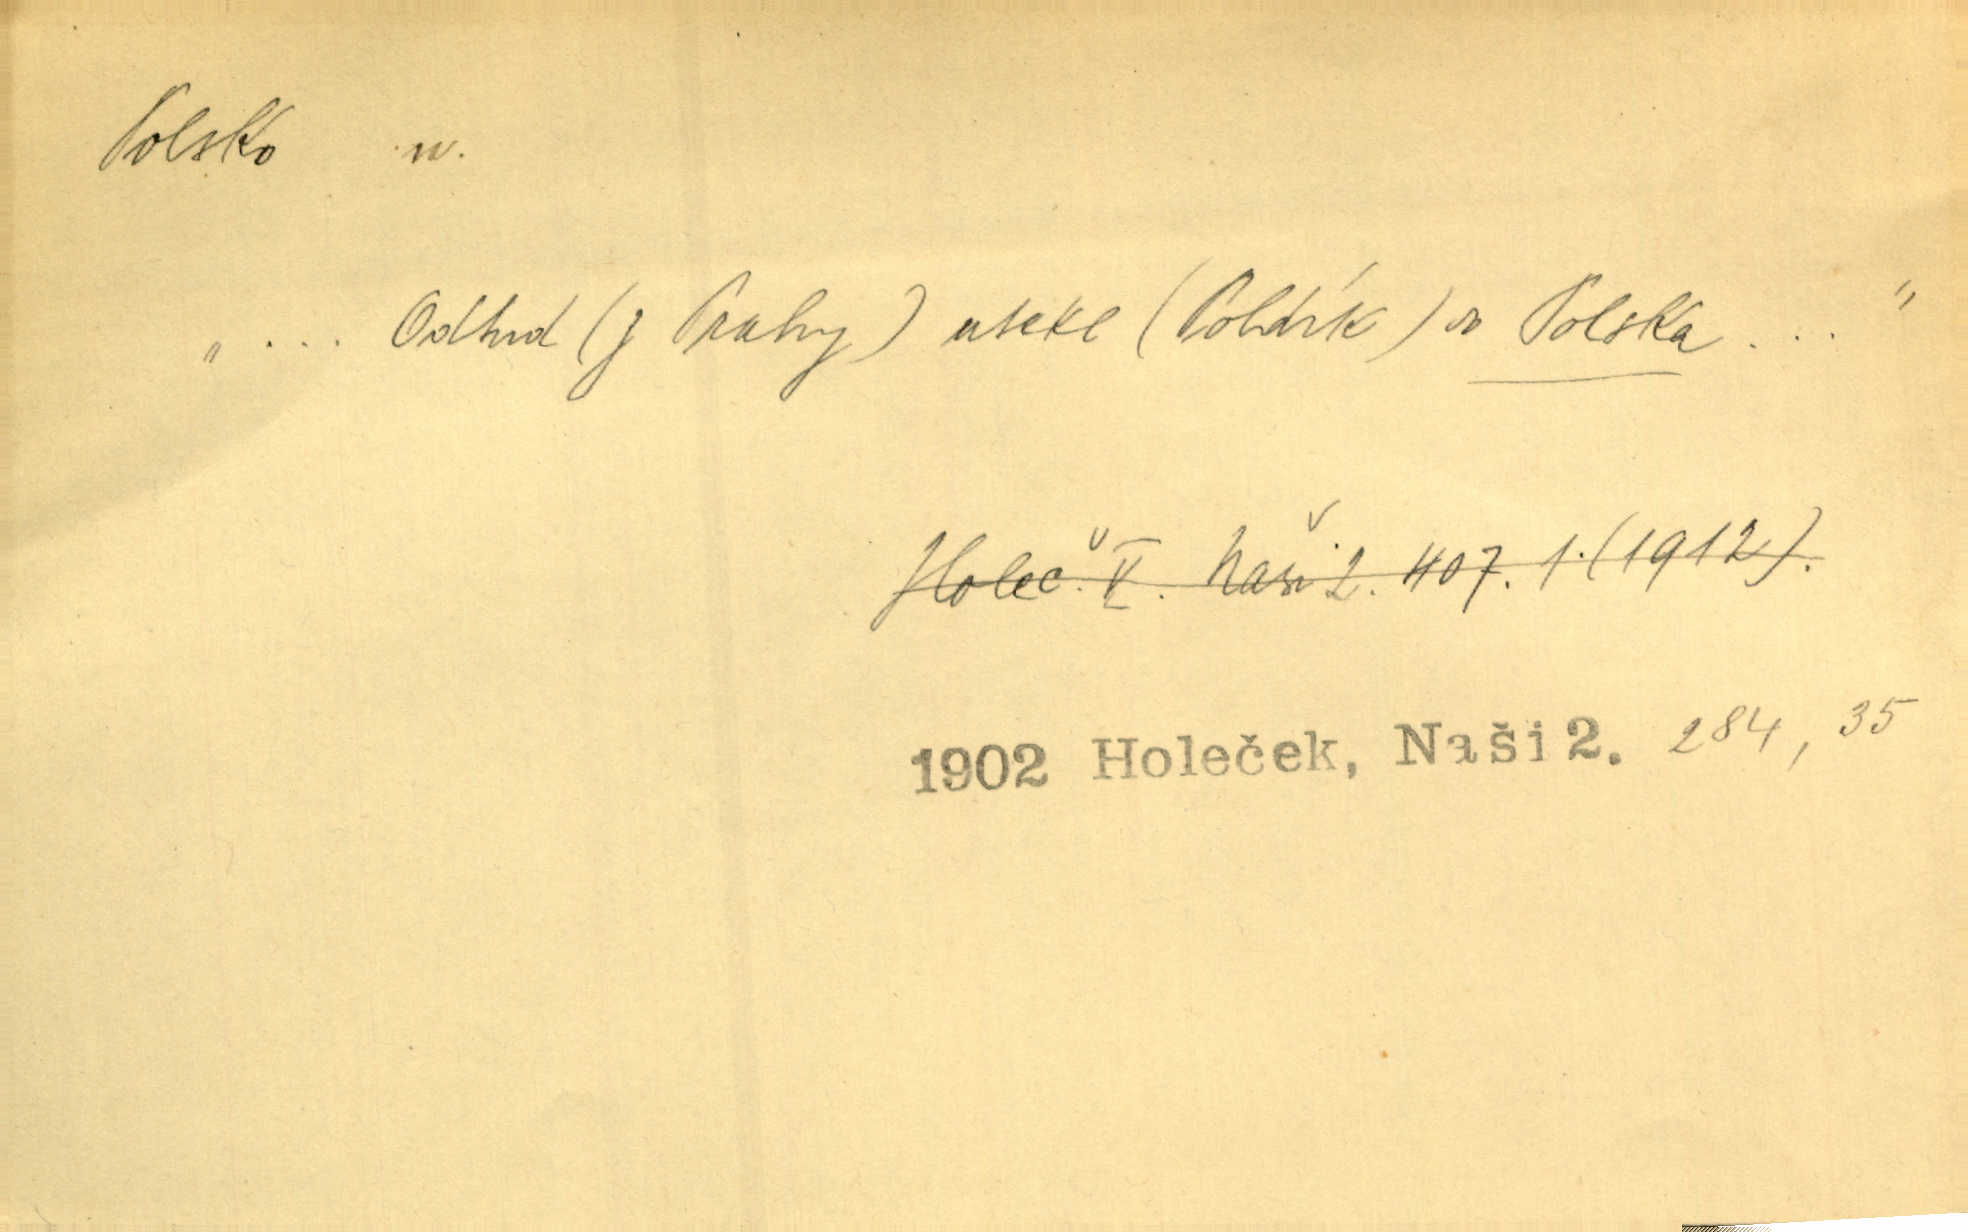 Polsko n.
„ ... Odtud (z Prahy) utekl (Poldík) do Polska ... "
Holeč. V. Naši 2. 407. 1. (1912).
1902 Holeček, Naši 2. 284, 35